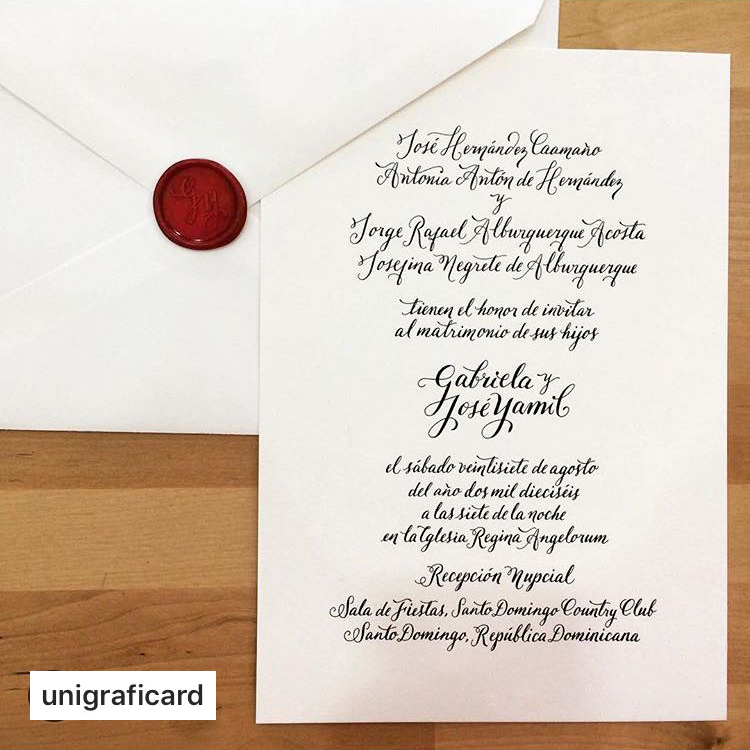 José Hernández Caamaño
Antonia Antón de Hernández
y
Jorge Rafael Alburquerque Acosta
Josefina Negrete de Alburquerque
tienen el honor de invitar
al matrimonio de sus hijos
Gabriela y
José Yamil
el sábado veintisiete de agosto
del año dos mil dieciséis
a las siete de la noche
en la Iglesia Regina Angelorum
Recepción Nupcial
Sala de Fiestas, Santo Domingo Country Club
Santo Domingo, República Dominicana
gy
unigraficard